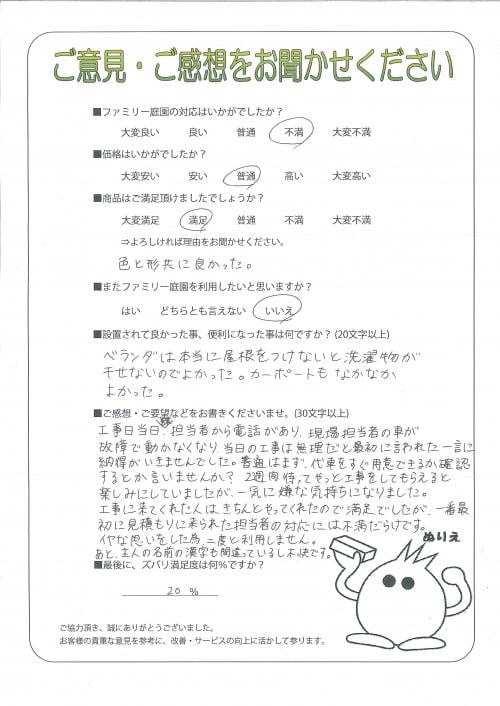 ご意見・ご感想をお聞かせください
■ファミリー庭園の対応はいかがでしたか？
大変良い 良い 普通 不満 大変不満
■価格はいかがでしたか？
大変安い 安い 普通 高い 大変高い
■商品はご満足頂けましたでしょうか？
大変満足 満足 普通 不満 大変不満
⇒よろしければ理由をお聞かせください。
色と形共に良かった。
■またファミリー庭園を利用したいと思いますか？
はい どちらとも言えない いいえ
■設置されて良かった事、便利になった事は何ですか？(20文字以上)
ベランダは本当に屋根をつけないと洗濯物が
干せないのでよかった。カーポートもなかなか
よかった。
■ご感想・ご要望などをお書きくださいませ。(30文字以上)
工事日当日、担当者から電話があり、現場担当者の車が
故障で動かなくなり、当日の工事は無理だと最初に言われた一言に
納得がいきませんでした。普通はまず、代車をすぐ用意できるか確認
するとか言いませんか？2週間待ってやっと工事をしてもらえると
楽しみにしていましたが、一気に嫌な気持ちになりました。
工事に来てくれた人はきちんとやってくれたので満足でしたが、一番最
初に見積もりに来られた担当者の対応には不満だらけです。
イヤな思いをした為、二度と利用しません。
あと、主人の名前の漢字も間違っているし不快です。
■最後に、ズバリ満足度は何％ですか？
20 %
ぬりえ
ご協力頂き、誠にありがとうございました。
お客様の貴重な意見を参考に、改善・サービスの向上に活かして参ります。